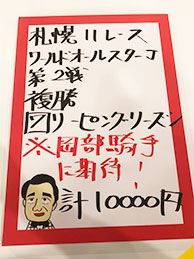 札幌11レース
ワールドオールスターJ
第2戦
複勝
⑫リーピングリーズン
※岡部騎手
に期待!
計10000円